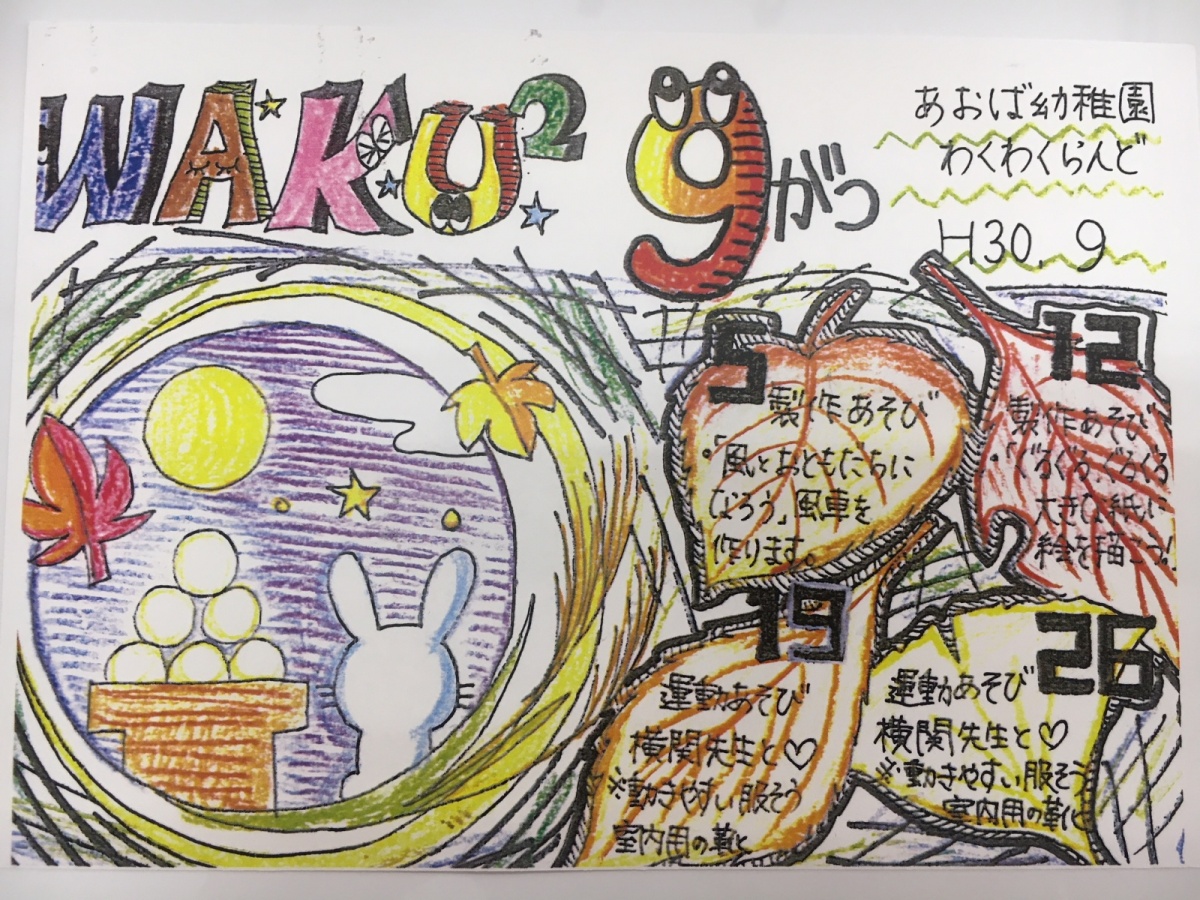 WAKU²
9がつ
あおば幼稚園
わくわくらんど
H30. 9
5
製作あそび
「風とおともだちに
なろう」風車を
作ります。
12
製作あそび
「ぐるぐる、ぐるぐる
大きな紙に
絵を描こう!
19
運動あそび
横関先生と♡
※動きやすい服そう
室内用の靴と
26
運動あそび
横関先生と♡
※動きやすい服そう
室内用の靴に